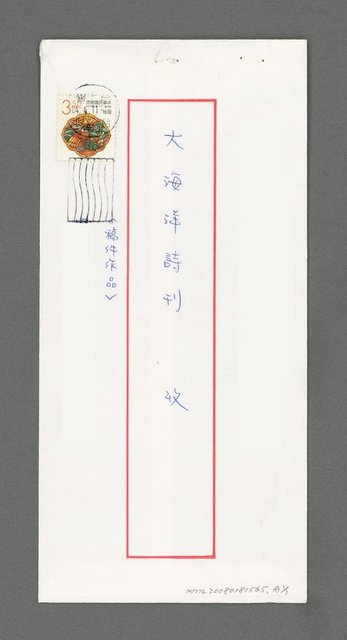 3.50
大海洋詩刊　收
〈稿件作品〉
NMTL20080181565, A 1/1